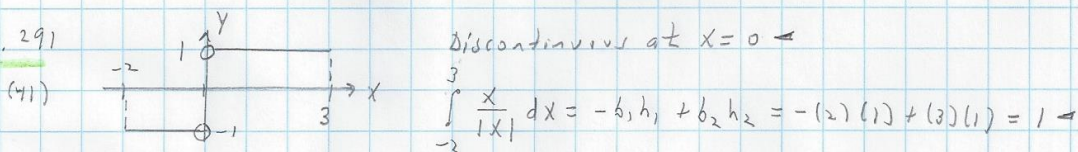 . 291
(41)
Y
1
-2
X
3
-1
Discontinuous at x = 0
∫_{-2}^{3} x/|x| dx = -b₁h₁ + b₂h₂ = -(2)(1) + (3)(1) = 1